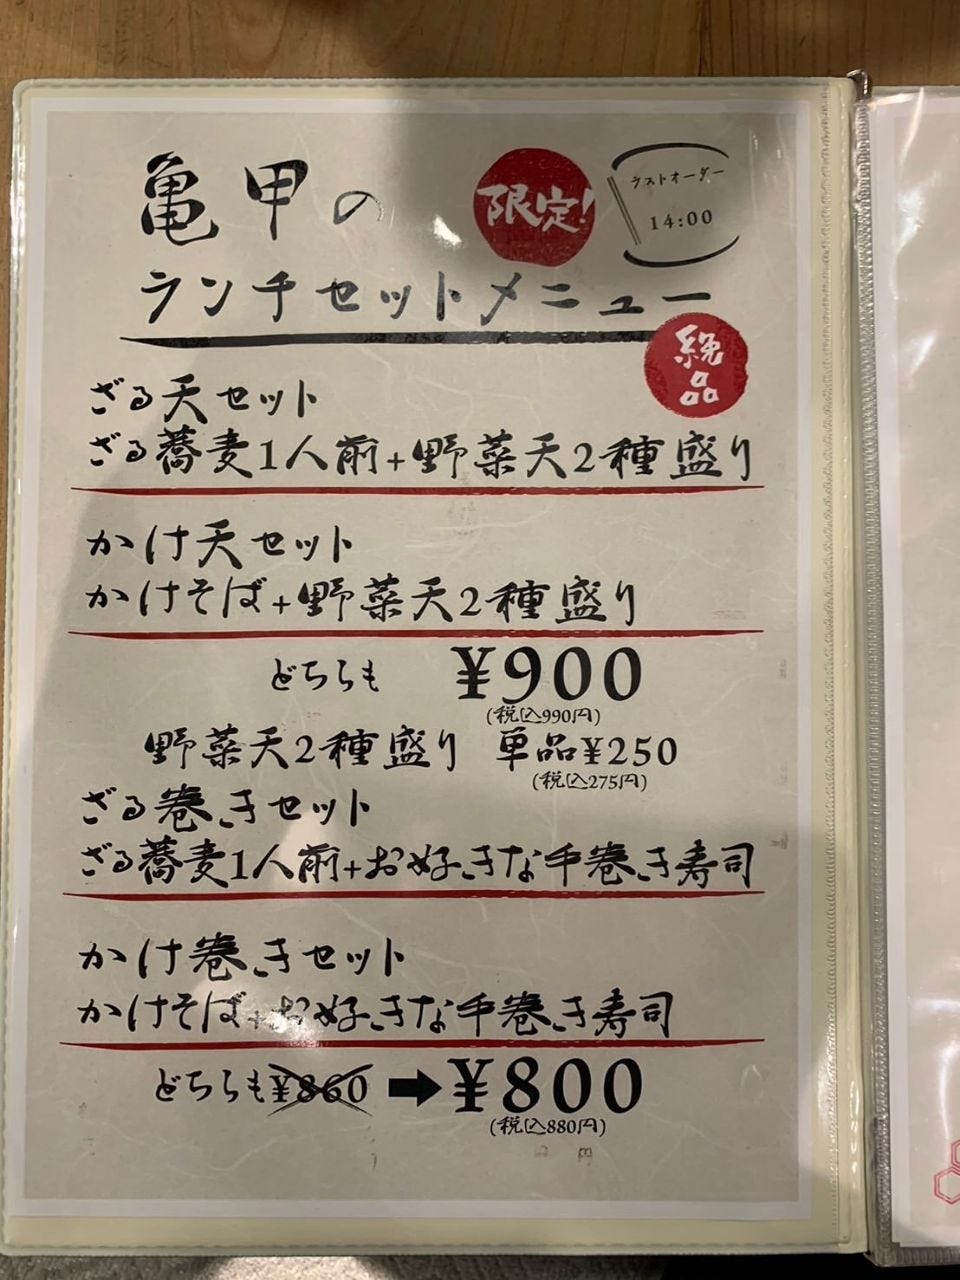 亀甲の
限定!
ラストオーダー
14:00
ランチセットメニュー
絶品
ざる天セット
ざる蕎麦1人前+野菜天2種盛り
かけ天セット
かけそば+野菜天2種盛り
どちらも ¥900
(税込990円)
野菜天2種盛り 単品¥250
(税込275円)
ざる巻きセット
ざる蕎麦1人前+お好きな手巻き寿司
かけ巻きセット
かけそば+お好きな手巻き寿司
どちらも¥860➡¥800
(税込880円)